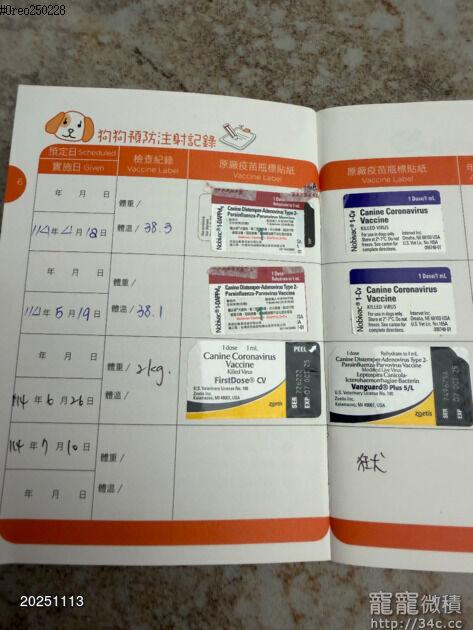 #Oreo250228
狗狗預防注射記錄
預定日 Scheduled
實施日 Given
檢查紀錄
Vaccine Label
原廠疫苗瓶標貼紙
Vaccine Label
原廠疫苗瓶標貼紙
Vaccine Label
6
年 月 日
體重 /
114年 4月 18日
體溫 / 38.3
1 Dose
Rehydrate to 1 ml
Canine Distemper-Adenovirus Type 2-
Parainfluenza-Parvovirus Vaccine
Nobivac® 1-DAPPv
1 Dose/1 mL
Canine Coronavirus
Vaccine
KILLED VIRUS
For use in dogs only.
Store at 2-7°C. Do not
freeze. See carton for
complete directions.
Intervet Inc.
Omaha, NE 68103 USA
U.S. Vet Lic. No. 165A
Nobivac® 1-Cv
年 月 日
體重 /
114年 5月 19日
體溫 / 38.1
1 Dose
Rehydrate to 1 ml
Canine Distemper-Adenovirus Type 2-
Parainfluenza-Parvovirus Vaccine
Nobivac® 1-DAPPv
1 Dose/1 mL
Canine Coronavirus
Vaccine
KILLED VIRUS
For use in dogs only.
Store at 2-7°C. Do not
freeze. See carton for
complete directions.
Intervet Inc.
Omaha, NE 68103 USA
U.S. Vet Lic. No. 165A
Nobivac® 1-Cv
年 月 日
體重 / 2kg.
114年 6月 26日
體溫 /
1 dose 1 mL
PEEL
Canine Coronavirus
Vaccine
Killed Virus
FirstDose® CV
U.S. Veterinary License No. 190
Zoetis Inc.
Kalamazoo, MI 49007, USA
zoetis
SER
EXP
1 dose Rehydrate to 1 mL
Canine Distemper-Adenovirus Type 2-
Parainfluenza-Parvovirus Vaccine
Modified Live Virus
Leptospira Canicola-
Icterohaemorrhagiae Bacterin
Vanguard® Plus 5/L
U.S. Veterinary License No. 190
Zoetis Inc.
Kalamazoo, MI 49007, USA
zoetis
SER
EXP 07 OCT 25
114年 7月 10日
體重 /
年 月 日
體溫 /
狂犬
20251113
寵寵微積
http://34c.cc